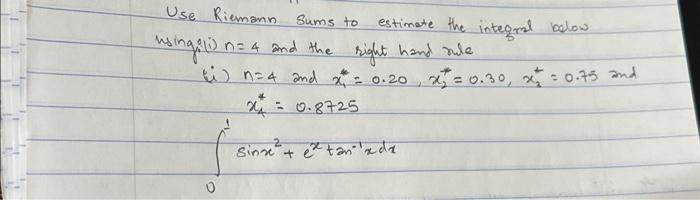 Use Riemann Sums to estimate the integral below
using: (i) n = 4 and the right hand rule
(ii) n=4 and x₁* = 0.20, x₂* = 0.30, x₃* = 0.75 and
x₄* = 0.8725
∫₀¹ sinx² + eˣ tan⁻¹x dx